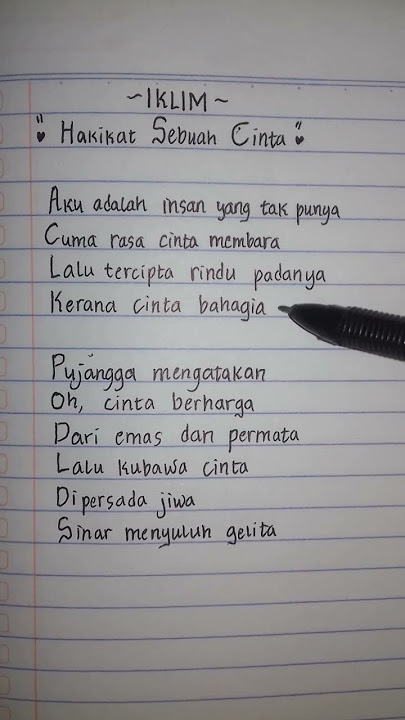 ~IKLIM~
" Hakikat Sebuah Cinta "
Aku adalah insan yang tak punya
Cuma rasa cinta membara
Lalu tercipta rindu padanya
Kerana cinta bahagia
Pujangga mengatakan
Oh, cinta berharga
Dari emas dan permata
Lalu kubawa cinta
Dipersada jiwa
Sinar menyuluh gelita